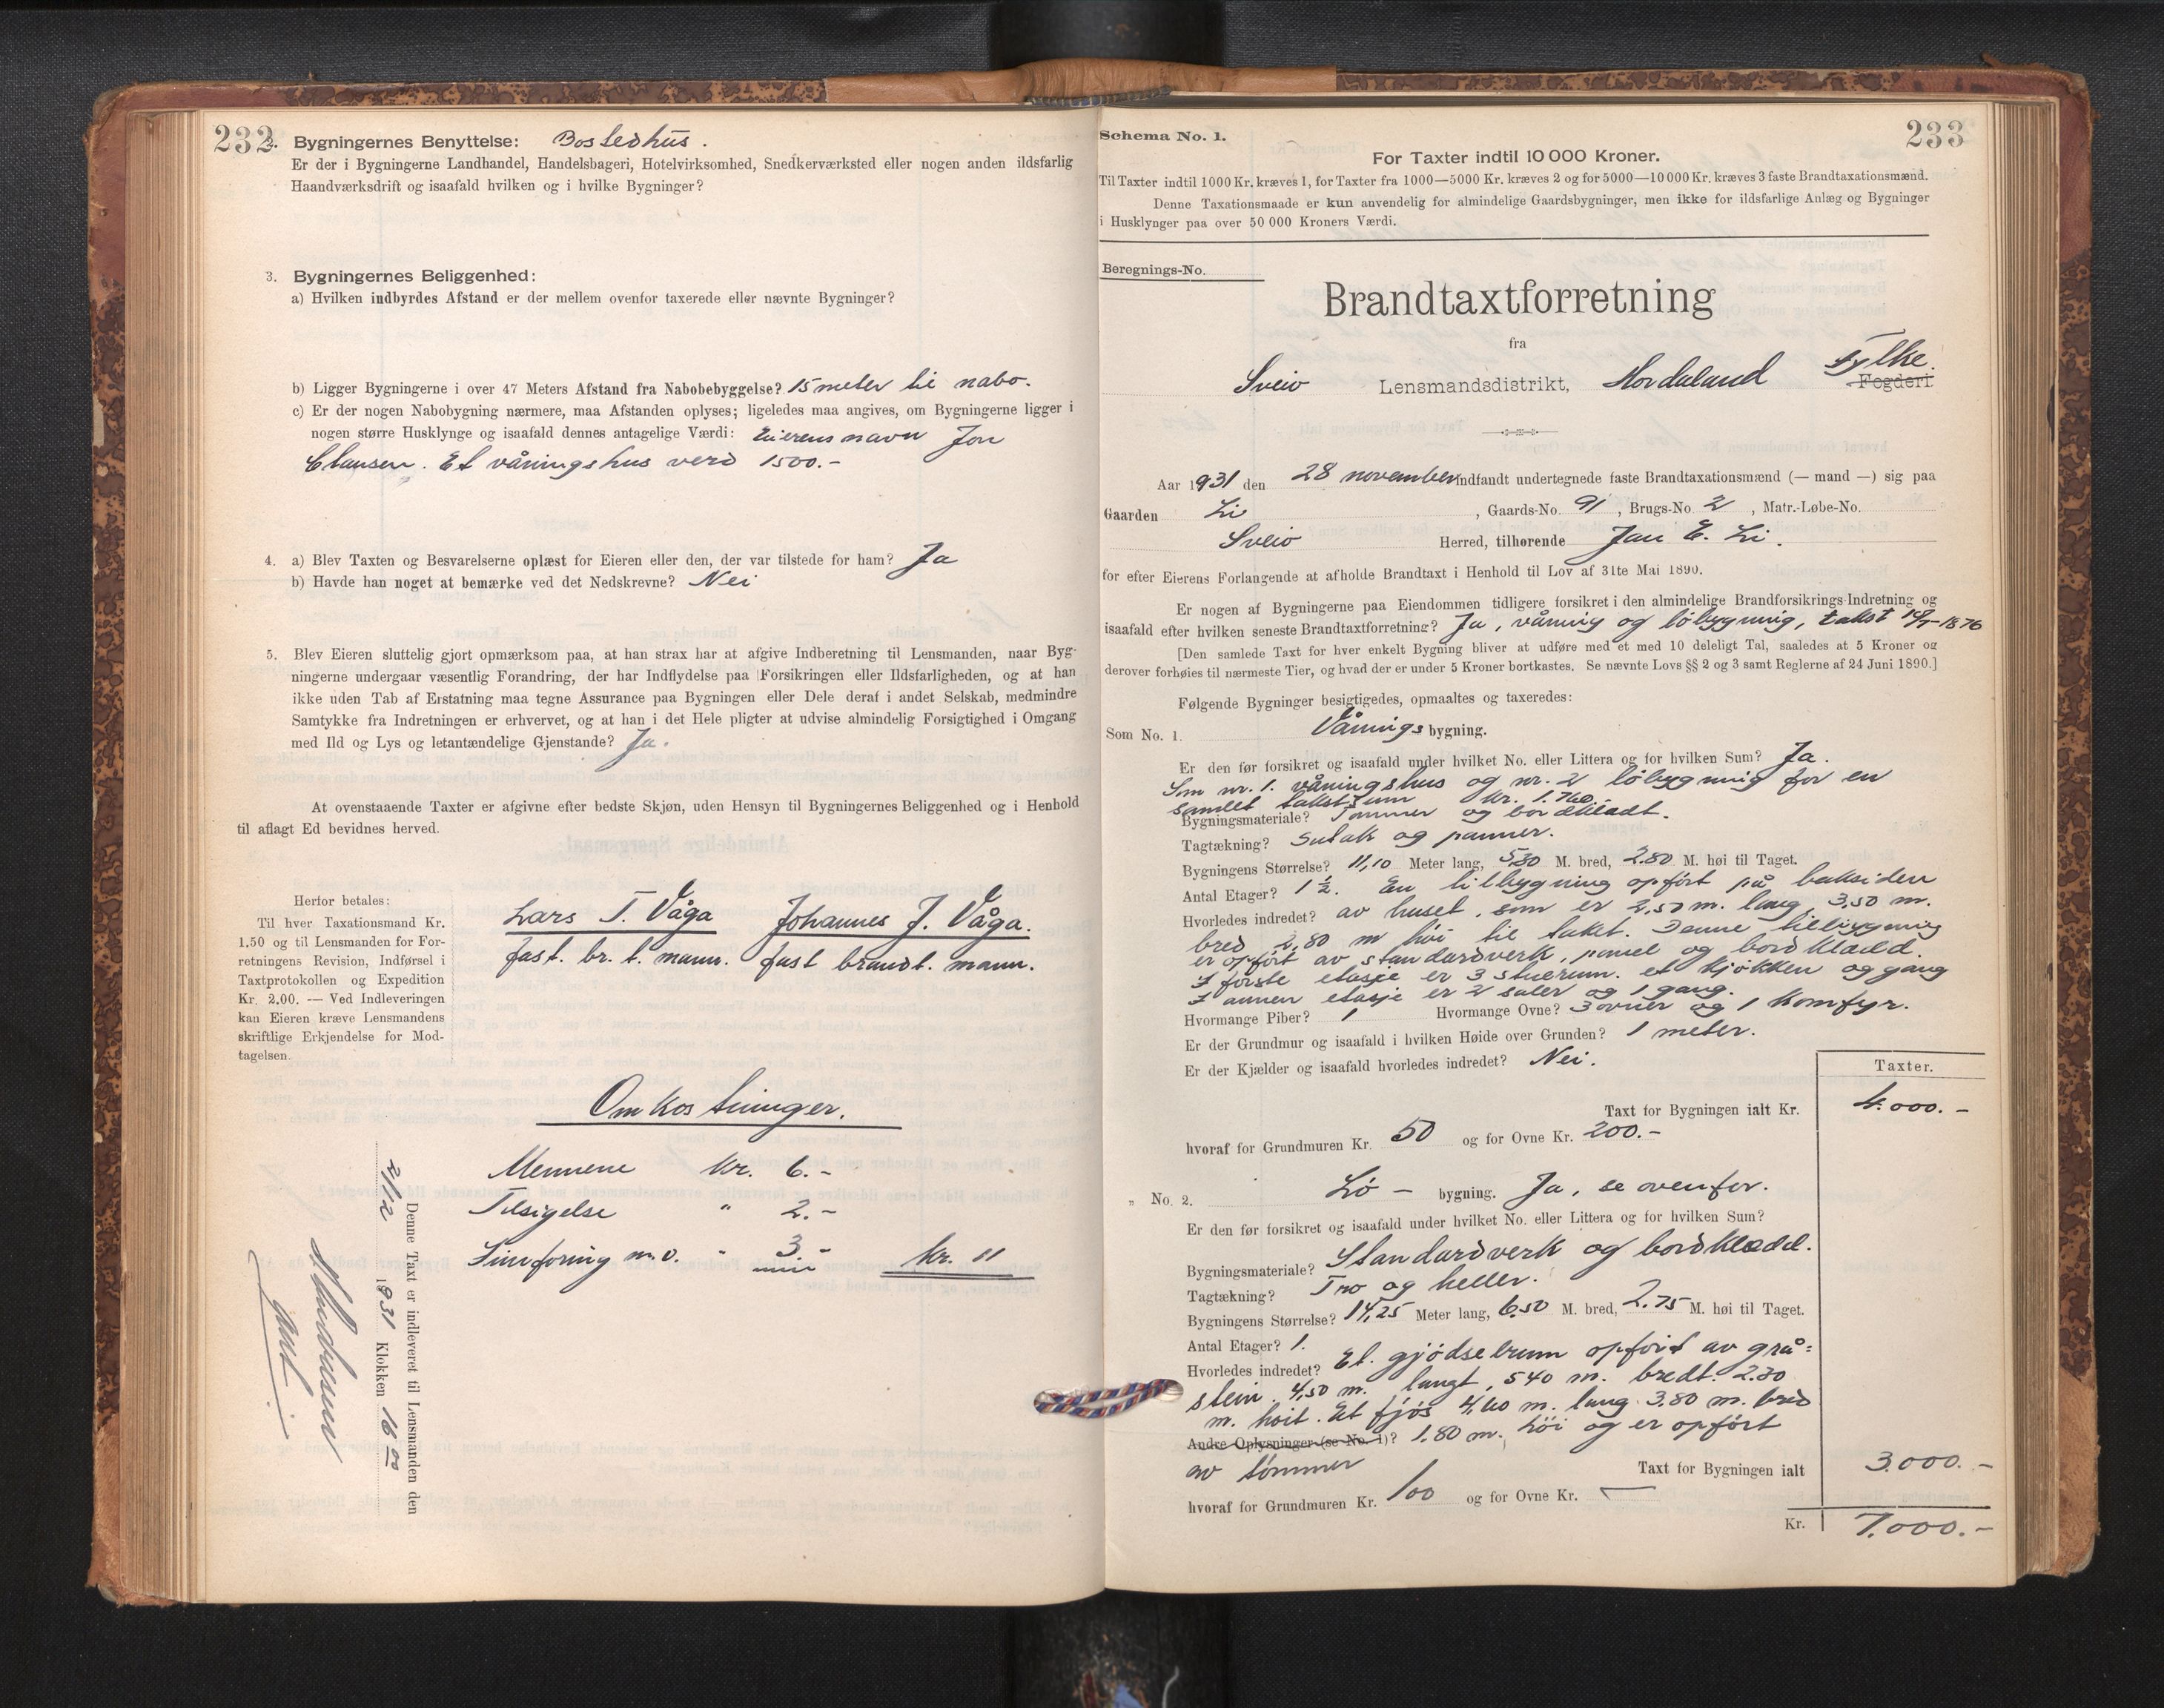 232
2. Bygningernes Benyttelse: Bostedhus.
Er der i Bygningerne Landhandel, Handelsbageri, Hotelvirksomhed, Snedkerværksted eller nogen anden ildsfarlig
Haandværksdrift og isaafald hvilken og i hvilke Bygninger?
3. Bygningernes Beliggenhed:
a) Hvilken indbyrdes Afstand er der mellem ovenfor taxerede eller nævnte Bygninger?
b) Ligger Bygningerne i over 47 Meters Afstand fra Nabobebyggelse? 15 meter til nabo.
c) Er der nogen Nabobygning nærmere, maa Afstanden oplyses; ligeledes maa angives, om Bygningerne ligger i
nogen større Husklynge og isaafald dennes antagelige Værdi: Eierens navn Jon
Clausen. Et våningshus verd 1500.-
4. a) Blev Taxten og Besvarelserne oplæst for Eieren eller den, der var tilstede for ham? Ja
b) Havde han noget at bemærke ved det Nedskrevne? Nei
5. Blev Eieren sluttelig gjort opmærksom paa, at han strax har at afgive Indberetning til Lensmanden, naar Byg-
ningerne undergaar væsentlig Forandring, der har Indflydelse paa Forsikringen eller Ildsfarligheden, og at han
ikke uden Tab af Erstatning maa tegne Assurance paa Bygningen eller Dele deraf i andet Selskab, medmindre
Samtykke fra Indretningen er erhvervet, og at han i det Hele pligter at udvise almindelig Forsigtighed i Omgang
med Ild og Lys og letantændelige Gjenstande? Ja.
At ovenstaaende Taxter er afgivne efter bedste Skjøn, uden Hensyn til Bygningernes Beliggenhed og i Henhold
til aflagt Ed bevidnes herved.
Herfor betales:
Til hver Taxationsmand Kr.
1.50 og til Lensmanden for For-
retningens Revision, Indførsel i
Taxtprotokollen og Expedition
Kr. 2.00. — Ved Indleveringen
kan Eieren kræve Lensmandens
skriftlige Erkjendelse for Mod-
tagelsen.
Lars T. Våga Johannes J. Våga.
fast. br. t. mann. fast brandt. mann.
Omkostninger.
Mennene Kr. 6.-
Tilsigelse " 2.-
Innføring m.v. " 3.- Kr. 11
Denne Taxt er indleveret til Lensmanden den
2/12 1931 Klokken 16 00
Schema No. 1.
233
For Taxter indtil 10 000 Kroner.
Til Taxter indtil 1000 Kr. kræves 1, for Taxter fra 1000—5000 Kr. kræves 2 og for 5000—10 000 Kr. kræves 3 faste Brandtaxationsmænd.
Denne Taxationsmaade er kun anvendelig for almindelige Gaardsbygninger, men ikke for ildsfarlige Anlæg og Bygninger
i Husklynger paa over 50 000 Kroners Værdi.
Beregnings-No.
Brandtaxtforretning
fra
Sveio Lensmandsdistrikt, Hordaland Fylke. Fogderi.
Aar 1931 den 28 november indfandt undertegnede faste Brandtaxationsmænd (— mand —) sig paa
Gaarden Li , Gaards-No. 91 , Brugs-No. 2 , Matr.-Løbe-No.
Sveio Herred, tilhørende Jan E. Li.
for efter Eierens Forlangende at afholde Brandtaxt i Henhold til Lov af 31te Mai 1890.
Er nogen af Bygningerne paa Eiendommen tidligere forsikret i den almindelige Brandforsikrings-Indretning og
isaafald efter hvilken seneste Brandtaxtforretning? Ja, våning og løbygning, takst 1876
[Den samlede Taxt for hver enkelt Bygning bliver at udføre med et med 10 deleligt Tal, saaledes at 5 Kroner og
derover forhøies til nærmeste Tier, og hvad der er under 5 Kroner bortkastes. Se nævnte Lovs §§ 2 og 3 samt Reglerne af 24 Juni 1890.]
Følgende Bygninger besigtigedes, opmaaltes og taxeredes:
Som No. 1. Våningsbygning.
Er den før forsikret og isaafald under hvilket No. eller Littera og for hvilken Sum? Ja.
Som nr. 1. våningshus og nr. 2 løbygning for en
samlet takstsum kr. 1.760.-
Bygningsmateriale? Tømmer og bordkledt.
Tagtækning? Sutak og panner.
Bygningens Størrelse? 11,10 Meter lang, 5,30 M. bred, 2.80 M. høi til Taget.
Antal Etager? 1 ½. En tilbygning opført på baksiden
Hvorledes indredet? av huset, som er 2,50 m. lang, 3,50 m.
bred 2,80 m høi til taket. Denne tilbygning
er opført av standardverk, panel og bordklædd.
I første etasje er 3 stuerum. et kjøkken og gang
I annen etasje er 2 saler og 1 gang.
Hvormange Piber? 1 Hvormange Ovne? 3 ovner og 1 komfyr.
Er der Grundmur og isaafald i hvilken Høide over Grunden? 1 meter.
Er der Kjælder og isaafald hvorledes indredet? Nei.
Taxter.
Taxt for Bygningen ialt Kr. 4.000.-
hvoraf for Grundmuren Kr. 50 og for Ovne Kr. 200.-
" No. 2. Lø - bygning. Ja, se ovenfor.
Er den før forsikret og isaafald under hvilket No. eller Littera og for hvilken Sum?
Bygningsmateriale? Standardverk og bordklædd.
Tagtækning? Tro og heller.
Bygningens Størrelse? 14,25 Meter lang, 6.50 M. bred, 2.75 M. høi til Taget.
Antal Etager? 1.
Hvorledes indredet? Et. gjødselrum opført av grå=
stein. 4,50 m. langt, 540 m. bredt. 2.30
m. høit. Et fjøs 4,60 m. lang 3.80 m. bred
Andre Oplysninger (se No. 1)? 1.80 m. høi og er opført
av tømmer Taxt for Bygningen ialt 3.000.-
hvoraf for Grundmuren Kr. 100 og for Ovne Kr. —
Kr. 7.000.-